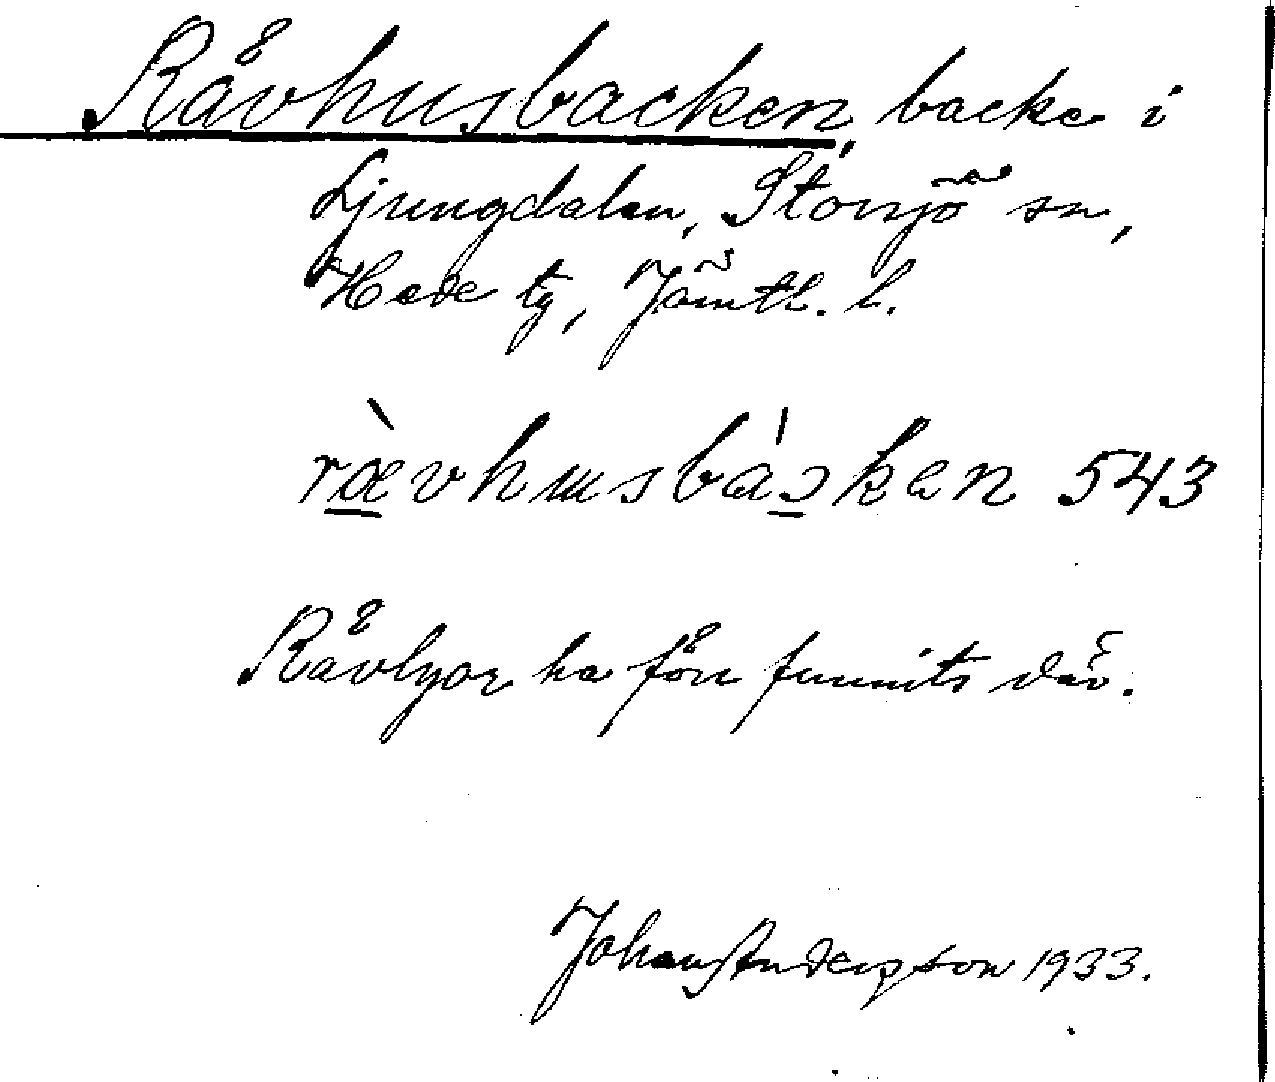 Råvhusbacken, backe i
Ljungdalen, Storsjö sn,
Hede tg, Jämtl. l.
ræ̀vhusbàɔken 543
Råvlyor ha förr funnits där.
Johan Anderzson 1933.